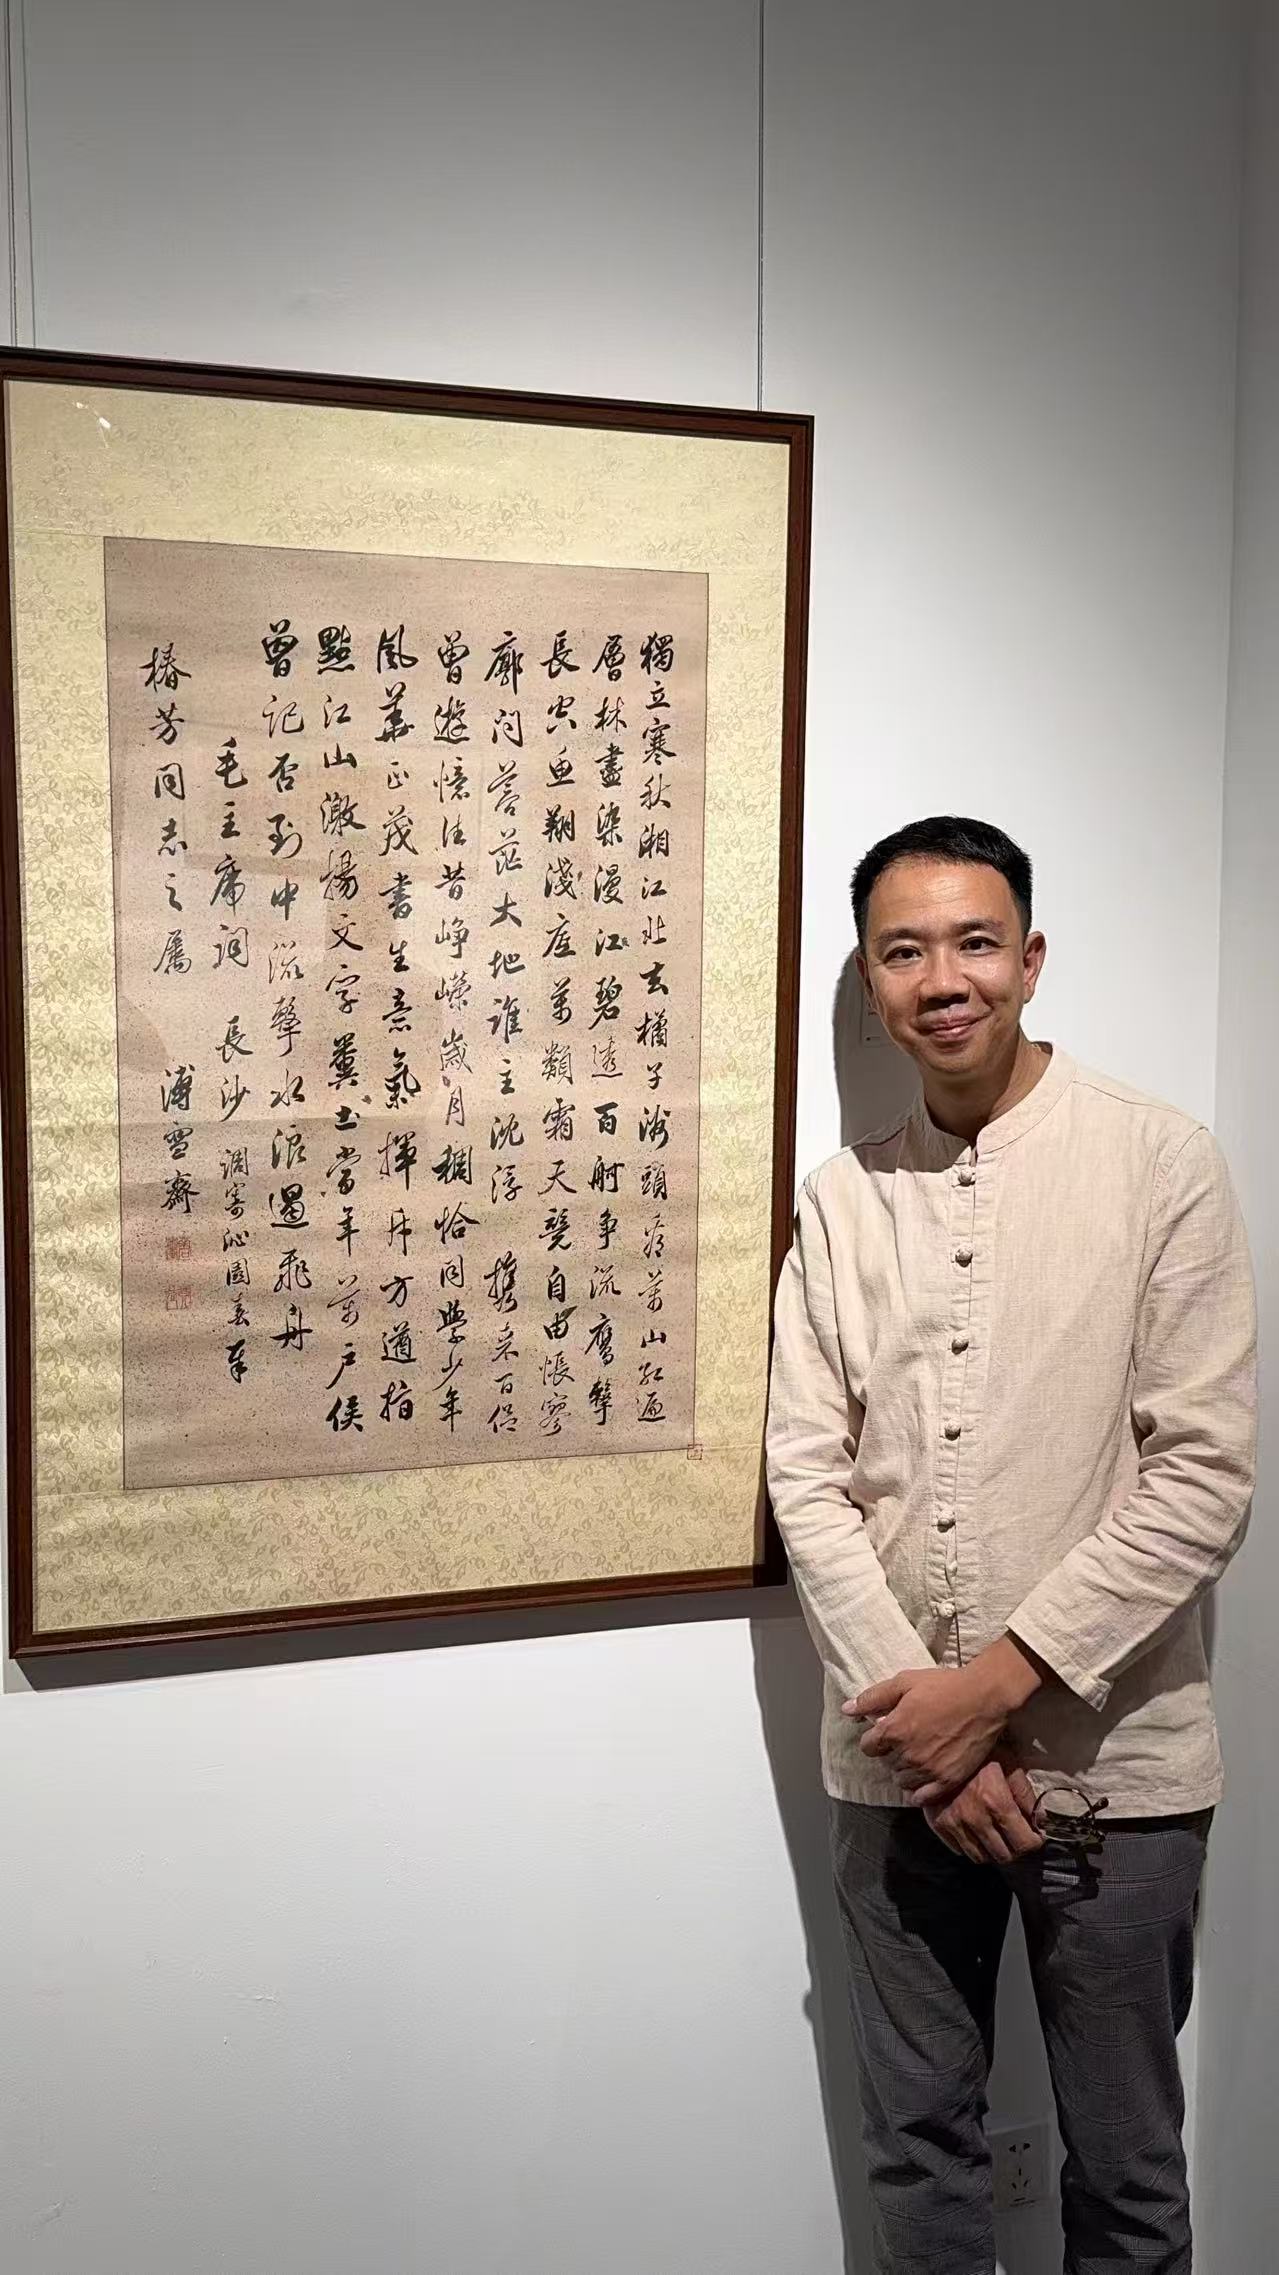 獨立寒秋湘江北去橘子洲頭看萬山紅遍
層林盡染漫江碧透百舸争流鹰擊
長空魚翔淺底萬類霜天競自由悵寥
廓问蒼茫大地誰主沈浮攜来百侣
曾遊憶往昔峥嶸歲月稠恰同學少年
風華正茂書生意氣揮斥方遒指
點江山激揚文字糞土當年萬户侯
曾记否到中流擊水浪遏飛舟
毛主席词 長沙 调寄沁園春 奉
椿芳同志之屬 溥雪齋